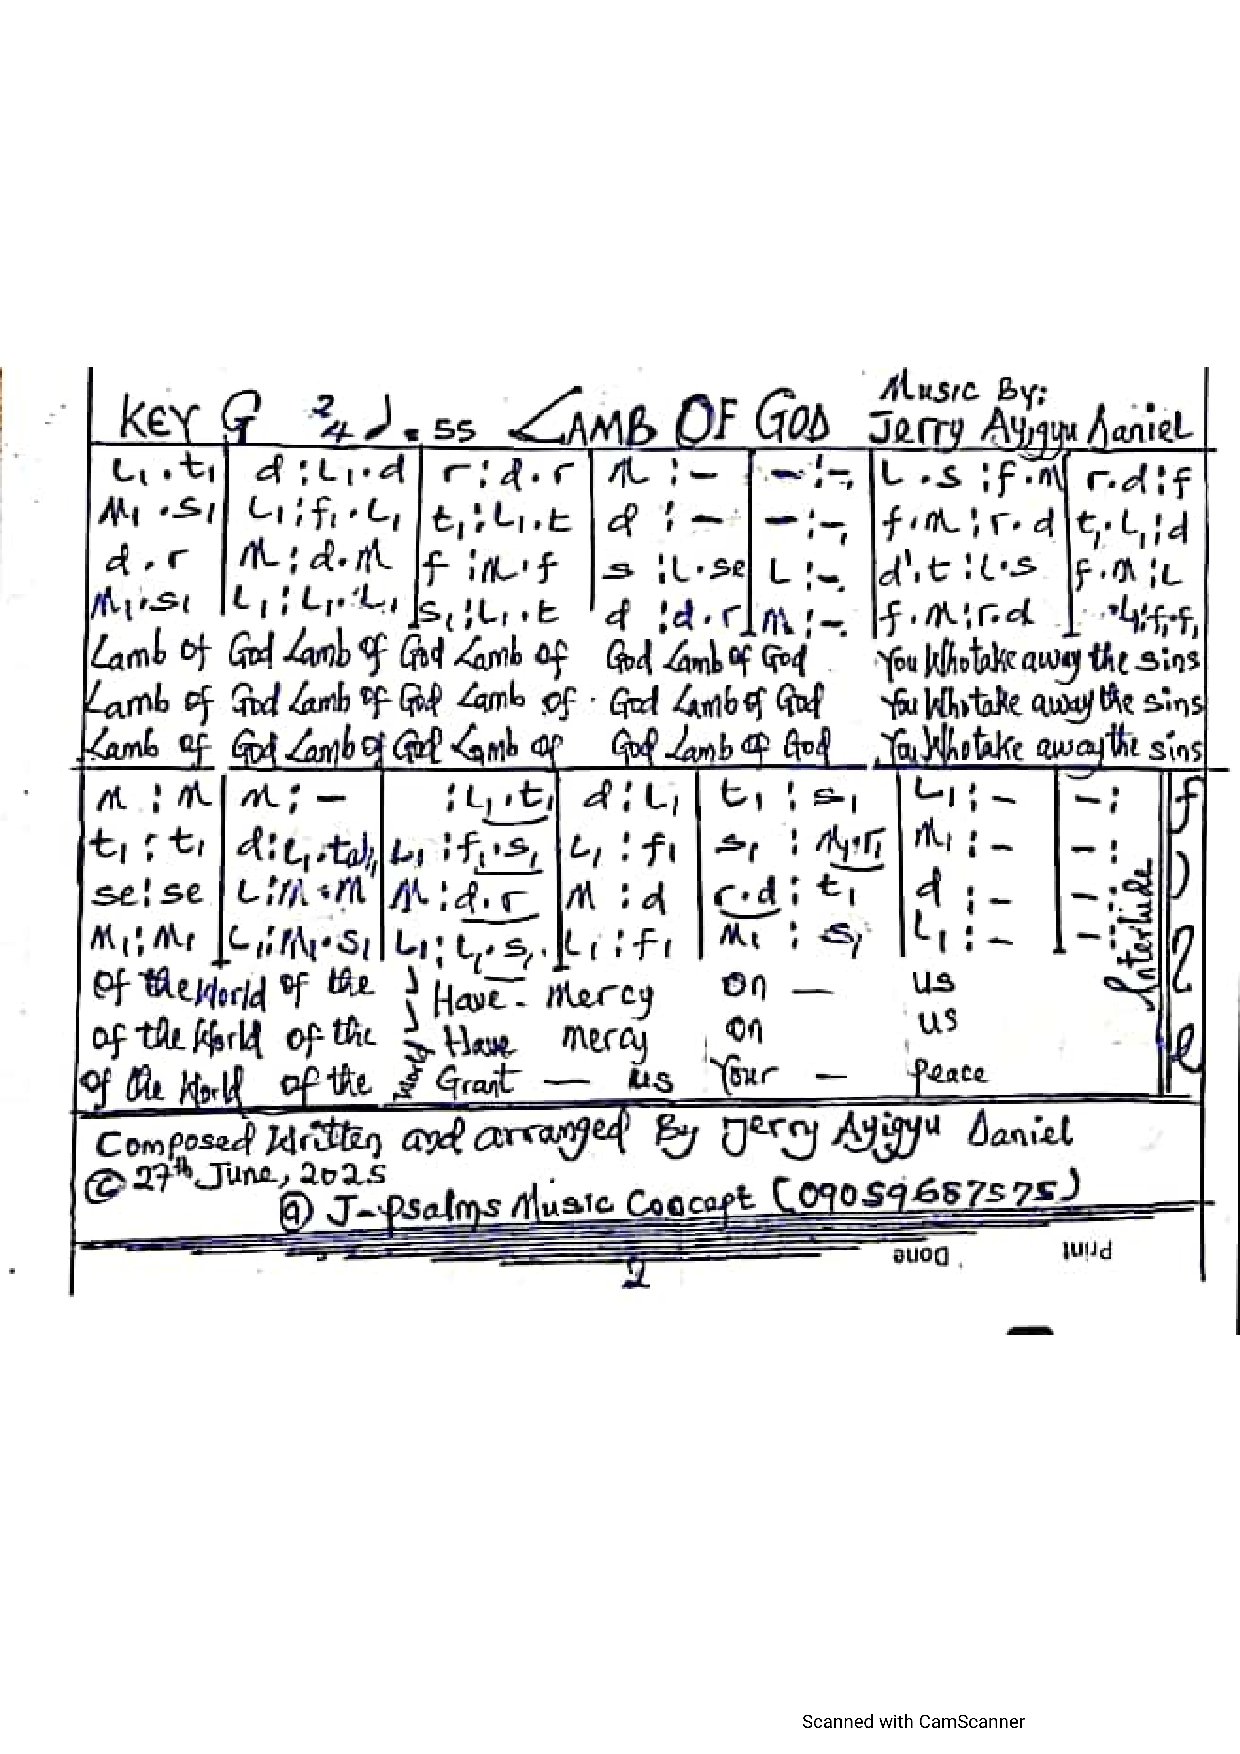 Music By:
KEY G 2/4 ♩. = 55 LAMB OF GOD Jerry Ayigyu Daniel
L₁.t₁ | d:L₁.d | r:d.r | m:- | -:-, | L.s:f.m | r.d:f
M₁.s₁ | L₁:f₁.L₁ | t₁:L₁.t | d:- | -:-, | f.m:r.d | t₁.L₁:d
d.r | m:d.m | f:m.f | s:L.se | L:-. | d'.t:L.s | f.m:L
M₁.s₁ | L₁:L₁.L₁ | s₁:L₁.t | d:d.r | m:-. | f.m:r.d | .L₁:f₁.f₁
Lamb of God Lamb of God Lamb of God Lamb of God You Who take away the sins
Lamb of God Lamb of God Lamb of God Lamb of God You Who take away the sins
Lamb of God Lamb of God Lamb of God Lamb of God You Who take away the sins
m:m | m:- | :L₁.t₁ | d:L₁ | t₁:s₁ | L₁:- | -:
t₁:t₁ | d:L₁.ta₁ | L₁:f₁.s₁ | L₁:f₁ | s₁:M₁.r₁ | m₁:- | -:
se:se | L:m.m | m:d.r | m:d | r.d:t₁ | d:- | -:
M₁:M₁ | L₁:M₁.s₁ | L₁:L₁.s₁ | L₁:f₁ | M₁:s₁ | L₁:- | -:
Interlude
fine
of the World of the Have - mercy on — us
of the World of the World Have mercy on us
of the World of the Grant — us Your — peace
Composed Written and arranged By Jerry Ayigyu Daniel
© 27th June, 2025
@ J-Psalms Music Concept (09059687575)
Done Print
2
Scanned with CamScanner